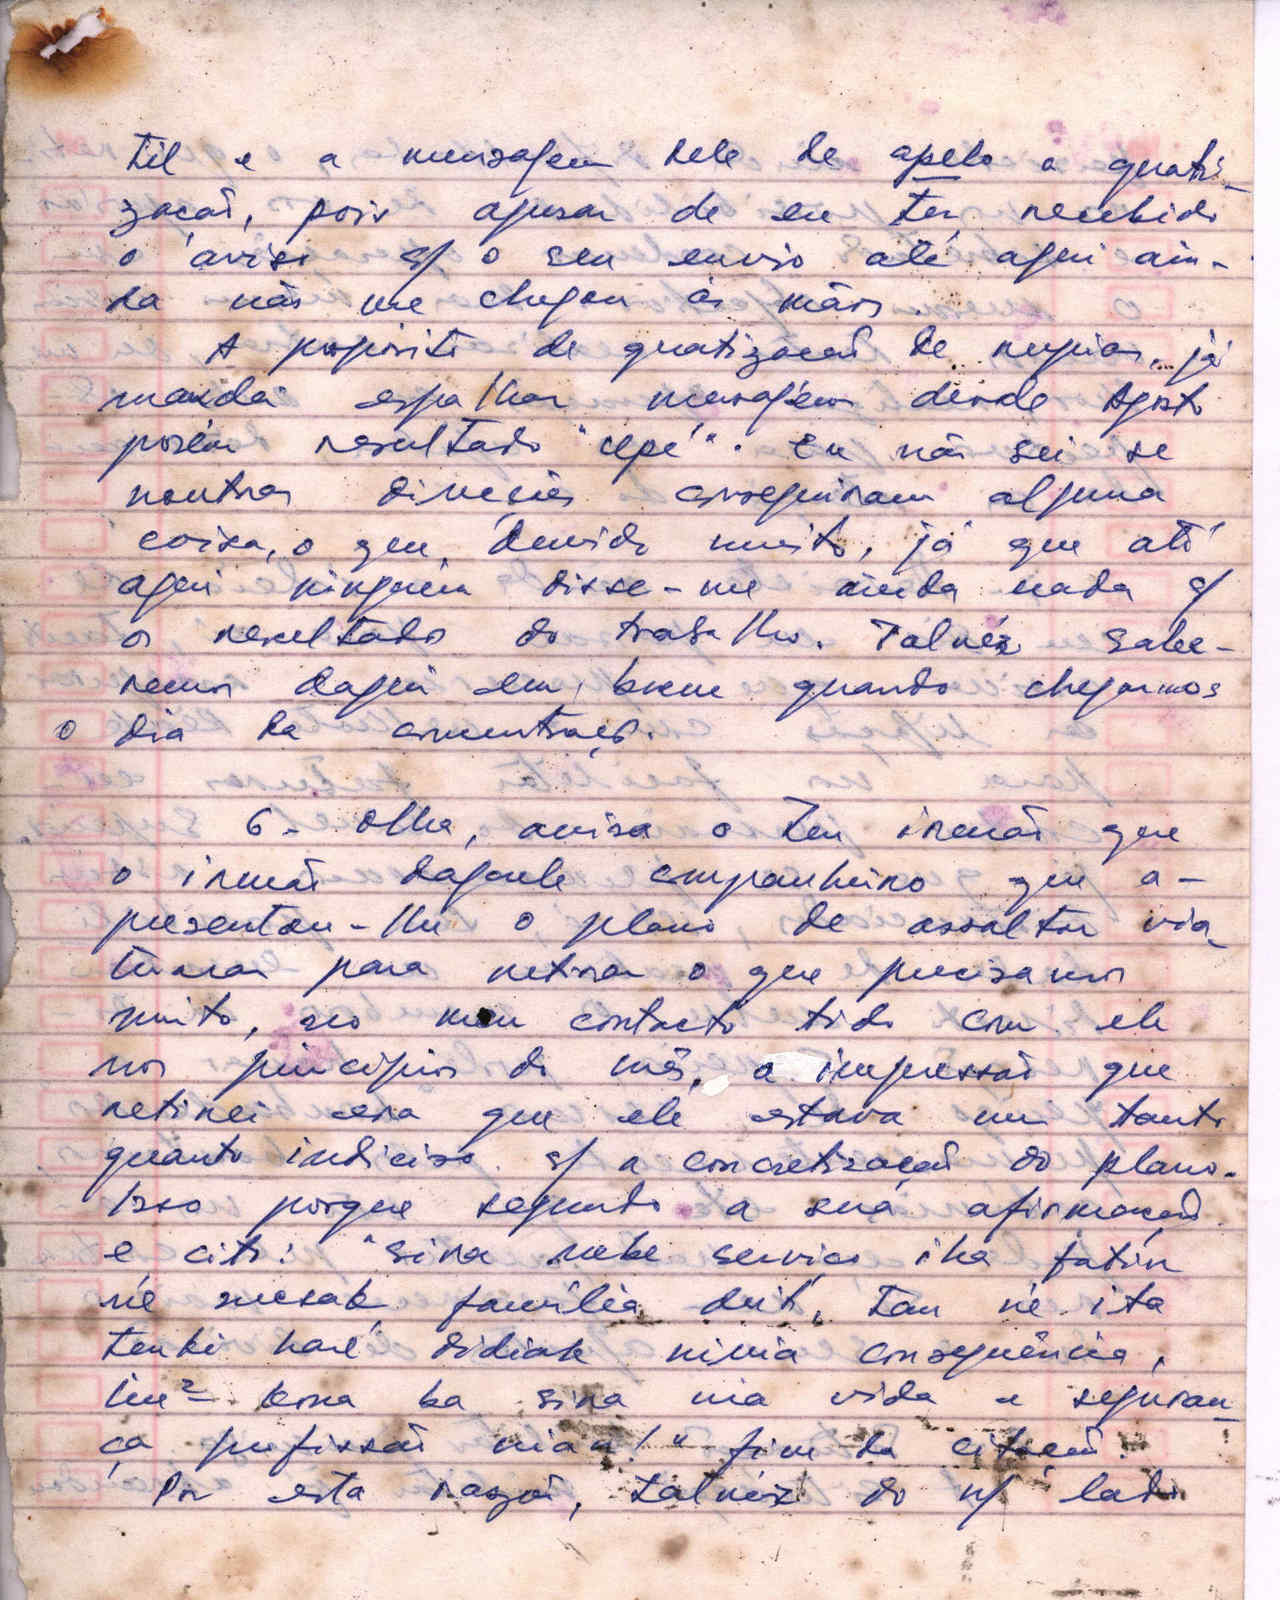 til e a mensagem dele de apelo a gnati-
zação, pois apesar de eu ter recebido
o aviso s/ o seu envio até aqui ain-
da não me chegou às mãos.
A propósito de gnatização de rupias, já
mandei espalhar mensagens desde Agosto
porém resultado "cepé". Eu não sei se
noutras direções conseguiram alguma
coisa, o que, duvido muito, já que até
aqui ninguém disse-me ainda nada s/
os resultados do trabalho. Talvéz sabe-
remos daqui em breve quando chegarmos
o dia da concentração.
6- Olha, avisa o teu irmão que
o irmão daquele companheiro que a-
presentou-lhe o plano de assaltar via-
turas para retirar o que precisamos
muito, no meu contacto tido com ele
nos princípios do mês, a impressão que
retirei era que ele estava um tanto
quanto indiciso s/ a concretização do plano.
Isso porque segundo a sua afirmação
e cito: "Sira nebe serviço iha fatin
né susak, família duit, tan né ita
tenki haré didiak ninia consequência,
liu² kona ba sira nia vida e seguran-
ça profissão nian!" fim da citação.
Por esta razão, talvéz do n/ lado